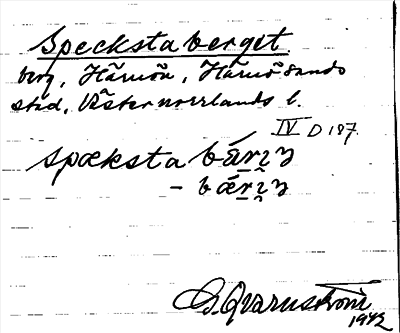 Speckstaberget.
berg, Härnön, Härnösands
stad, Västernorrlands l.
IV D 187
spæksta bá̱rɩ̱ʒ
- bǽ̱rɩ̱ʒ
G. Qvarnström
1942